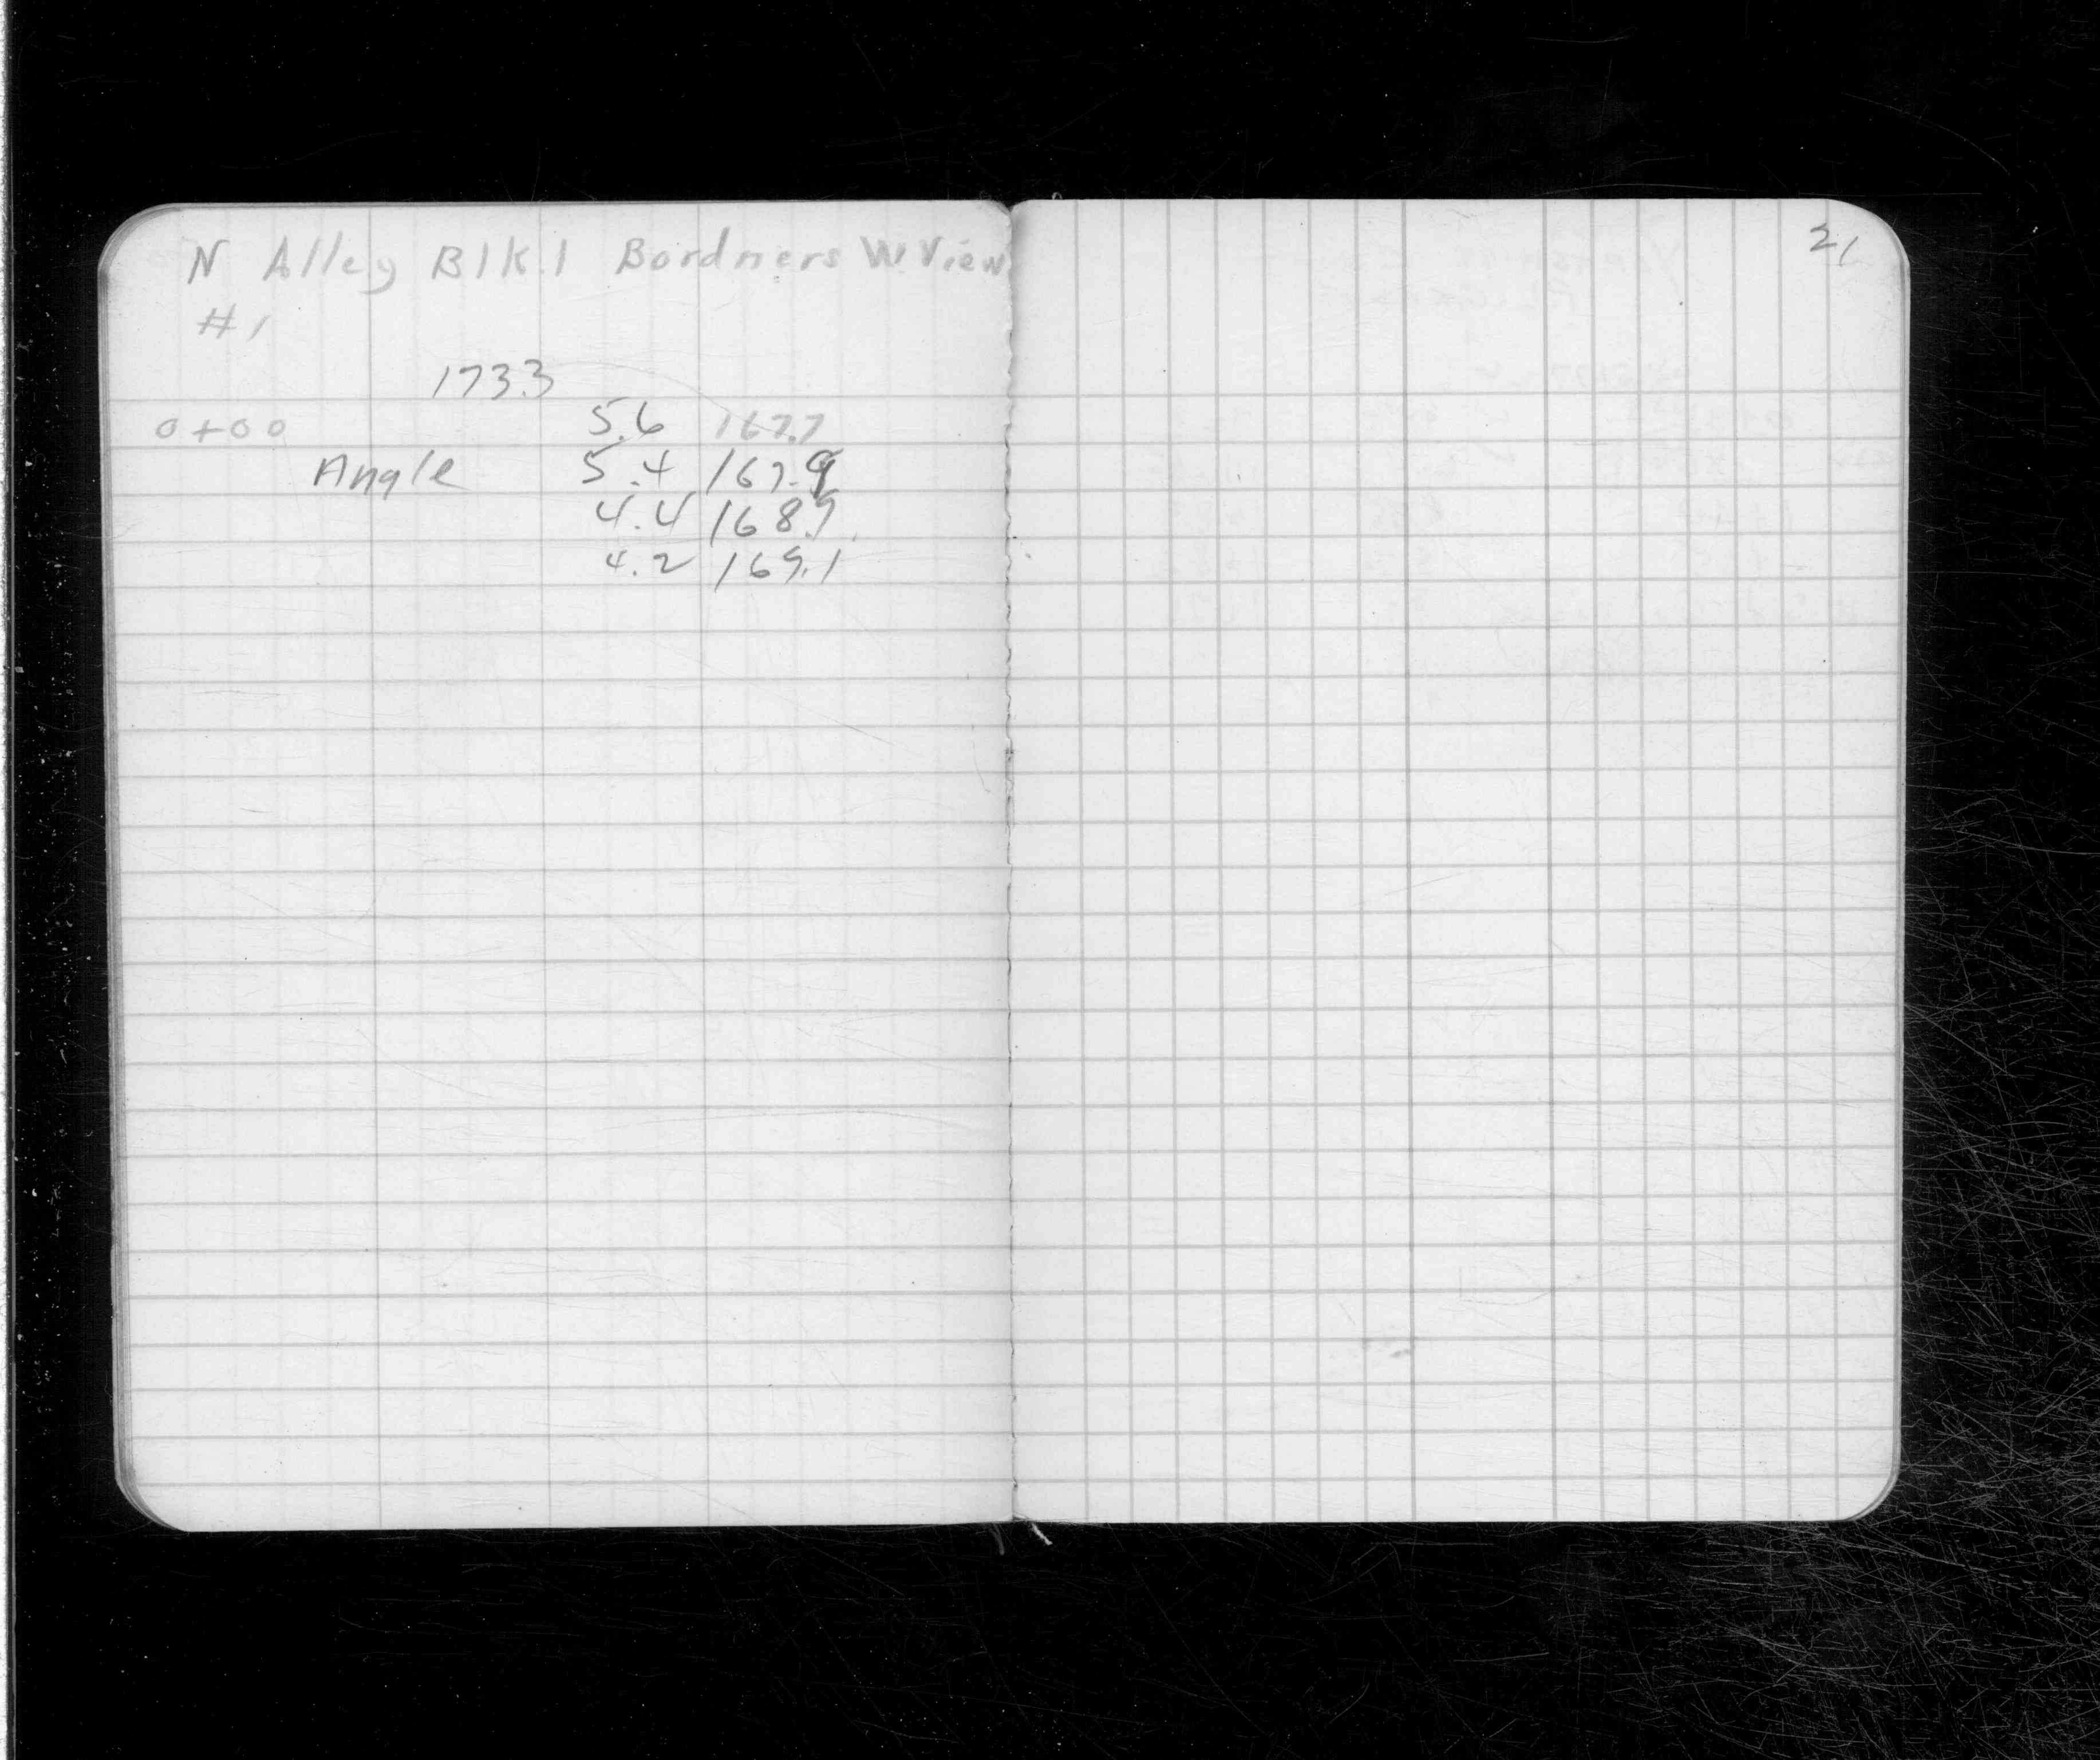 N Alley Blk.1 Bordners W. View
#1
173.3
0+00 5.6 167.7
Angle 5.4 167.9
4.4 168.9
4.2 169.1
21